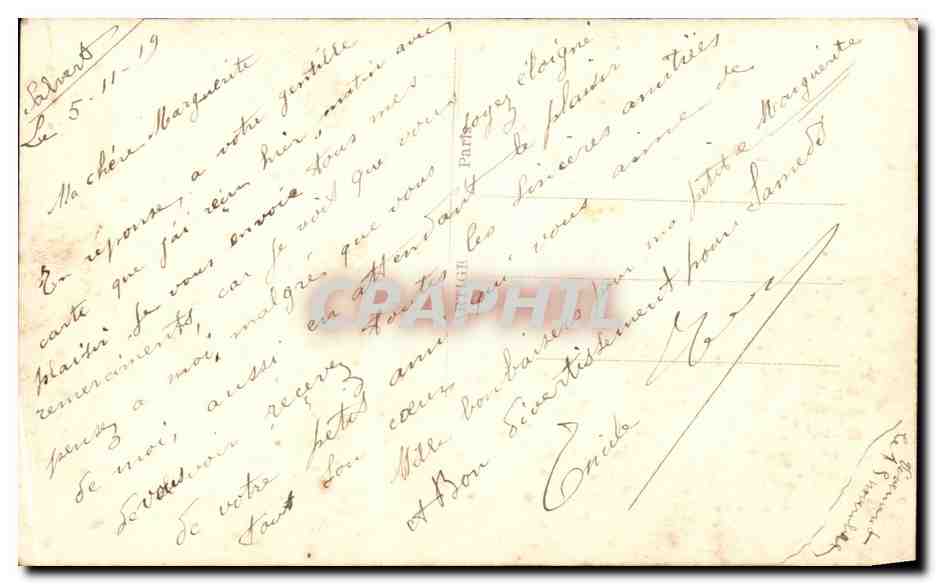 Salvert
Le 5-11-19
Ma chère Marguerite
En réponse, a votre gentille
carte que j'ai réçu hier, matin avec
plaisir je vous envoie tous mes
remerciments, car je vois que vous
pensez a moi, malgrés que vous soyez éloigné
de moi, aussi en attendant le plaisir
de vous voir récévez toutes les sincères amitiées
de votre petit ami qui vous aime de
tout son cœur
Mille bonbaisers pour ma petite Marguerite
et Bon divertissement pour Samedi
Paris
CPAPHIL